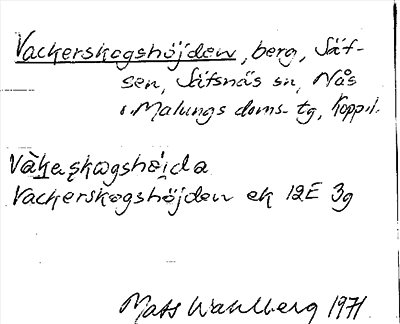 Vackerskogshöjden, berg, Säf-
sen, Säfsnäs sn, Nås
o. Malungs doms. tg, Kopp.l.
Vàkaskogshö̀ida
Vackerskogshöjden ek 12E 3g
Mats Wahlberg 1971